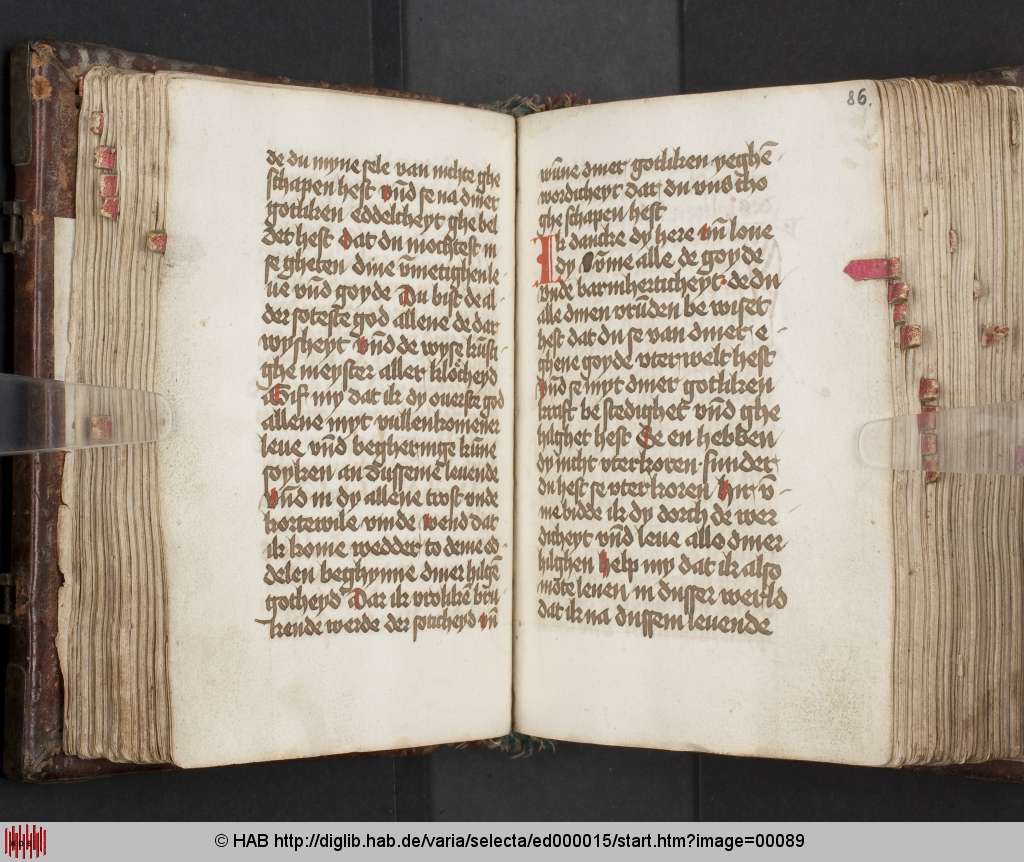 de du myne sele van nichte ghe
schapen hest vnd se na diner
gotliken eddelcheyt ghe bel
det hest dat du mochtest in
se gheten dine vmetighen le
ue vnd goyde Du bist de al
der soteste god allene de dar
wysheyt vnd de wyse kunsti
ghe meyster aller klocheyd
Gif my dat ik dy ouerste god
allene myt vullenkomener
leue vnd begheringe kune
soyken an dusseme leuende
vnd in dy allene trost vnde
kortewile vinde wend dat
ik kome wedder to deme ed
delen beghynne diner hilgē
gotheyd Dar ik vroliken bru
kende werde der soticheyd vn̄
86.
wūne diner gotliken yeghē
wordicheyt dat du vns tho
ghe schapen hest
Ik dancke dy here vn̄ loue
dy vmme alle de goyde
vnde barmherticheyt de du
alle dinen vrūden be wiset
hest dat du se van diner e
ghene goyde vter welt hest
vnd se myt diner gotliken
kraft be stedighet vnd ghe
hilghet hest Se en hebben
dy nicht vterkoren sunder
du hest se vter koren hir v̄
me bidde ik dy dorch de wer
dicheyt vnd leue alle diner
hilghen help my dat ik also
mote leuen in dusser werld
dat ik na dussem leuende
© HAB http://diglib.hab.de/varia/selecta/ed000015/start.htm?image=00089